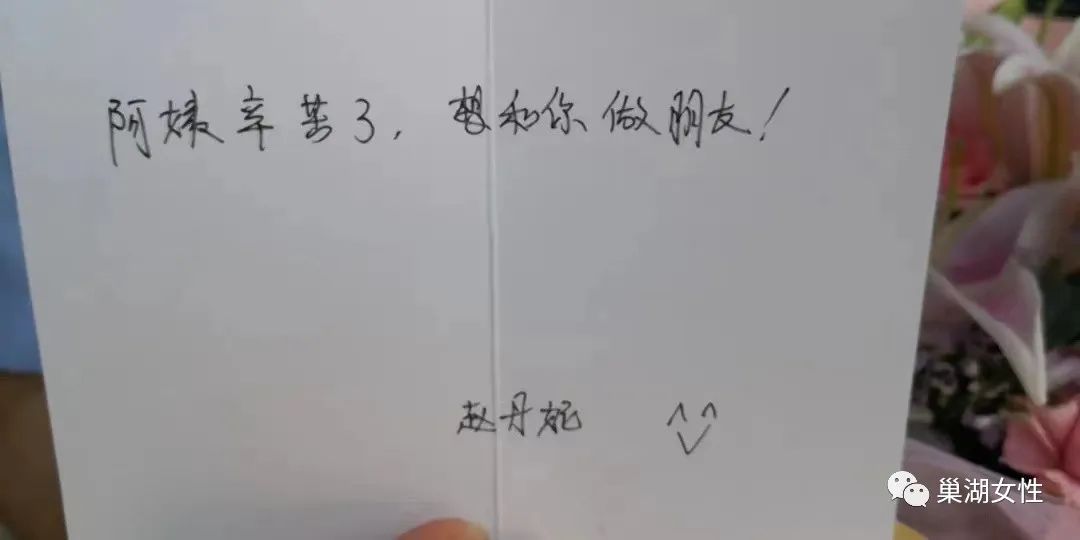 阿姨辛苦了，想和你做朋友！
赵丹妮 ^^
巢湖女性